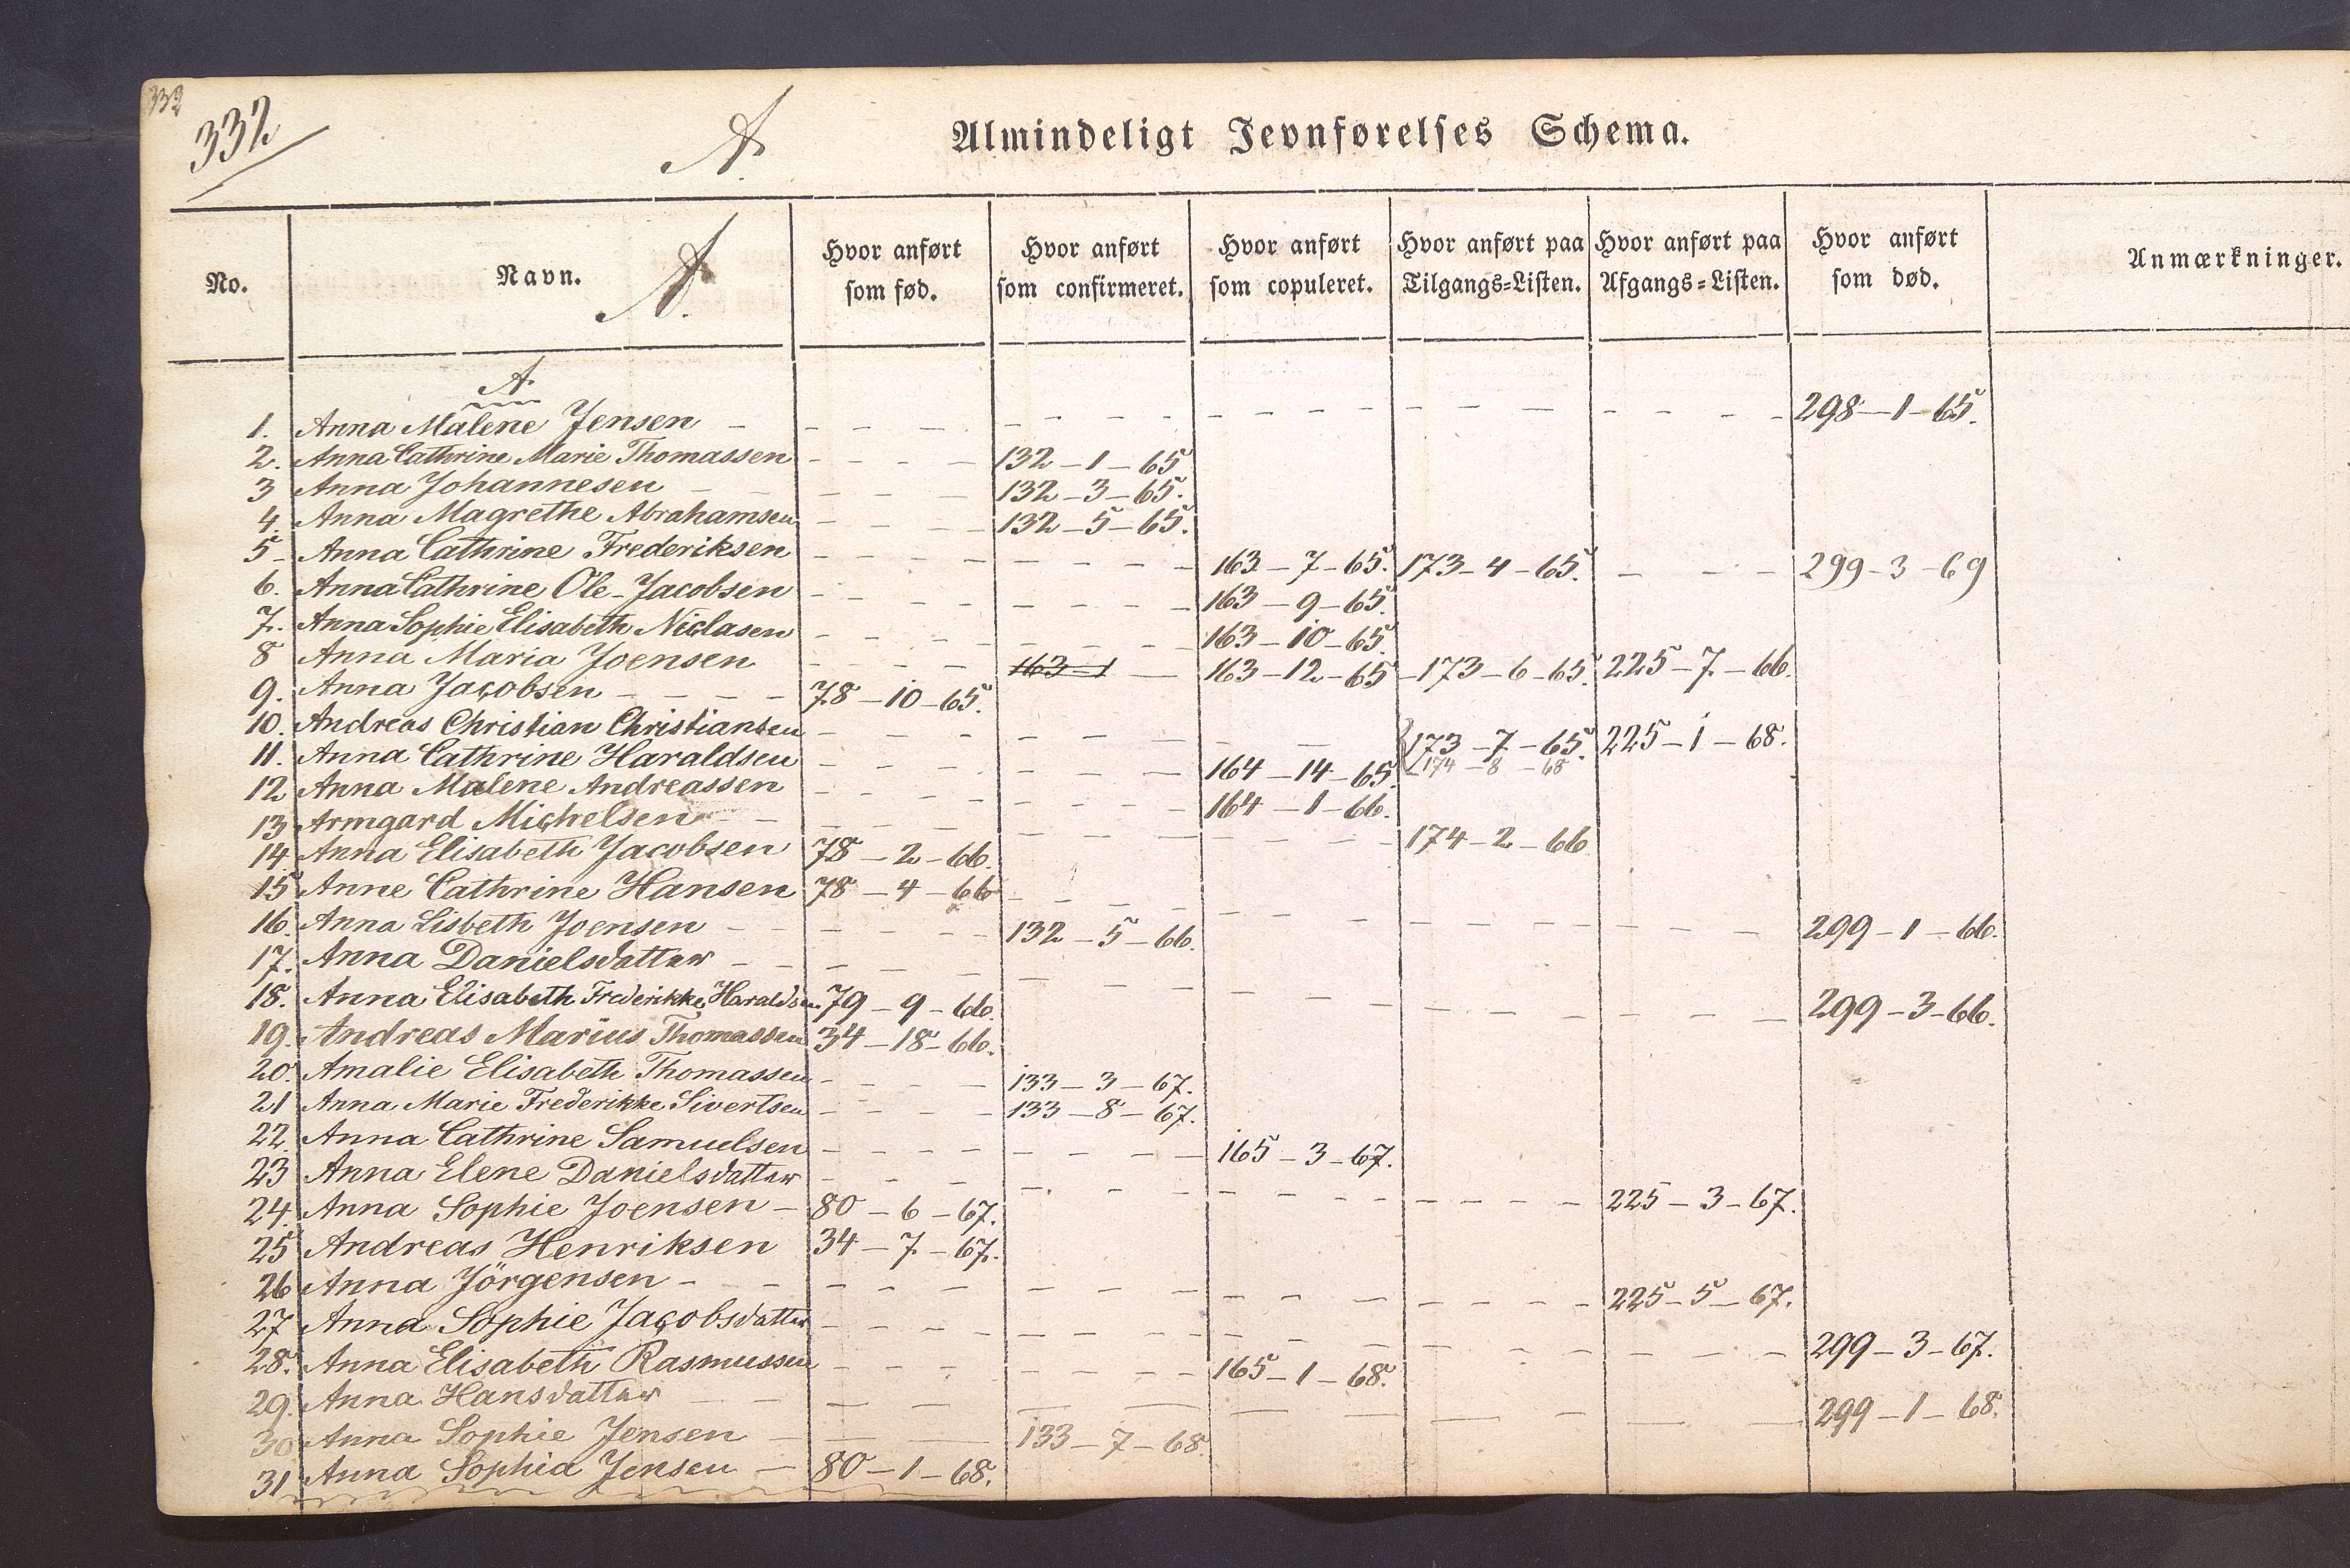 332
332
A.
Almindeligt Jevnførelses Schema.
No. Navn. A. Hvor anført som fød. Hvor anført som confirmeret. Hvor anført som copuleret. Hvor anført paa Tilgangs=Listen. Hvor anført paa Afgangs=Listen. Hvor anført som død. Anmærkninger.
A.
1. Anna Malene Jensen - - - - - - - - - - - - - - - - - - - 298-1-65.
2. Anna Cathrine Marie Thomassen - - - - 132-1-65
3 Anna Johannesen - - - - - 132-3-65.
4. Anna Magrethe Abrahamsen - - - - 132-5-65.
5- Anna Cathrine Frederiksen - - - - - - - - 163-7-65. 173-4-65. - - - 299-3-69
6. Anna Cathrine Ole-Jacobsen - - - - - - - - 163-9-65.
7. Anna Sophie Elisabeth Niclasen - - - - - - - - 163-10-65.
8 Anna Maria Joensen - - - - 163-1 - 163-12-65 -173-6-65. 225-7-66.
9. Anna Jacobsen - - - - 78-10-65.
10. Andreas Christian Christiansen - - - - - - - - - - 173-7-65. 225-1-68.
174-8-68
11. Anna Cathrine Haraldsen - - - - - - - - 164-14-65.
12 Anna Malene Andreassen - - - - - - - - 164-1-66.
13 Armgard Michelsen - - - - - - - - - - - 174-2-66
14 Anna Elisabeth Jacobsen 78-2-66.
15 Anne Cathrine Hansen 78-4-66 - - - - - - - - - - - - 299-1-66.
16. Anna Lisbeth Joensen - - - - - 132-5-66.
17. Anna Danielsdatter - - - - - - - - - - - - - - - 299-3-66.
18. Anna Elisabeth Frederikke Haraldsen 79-9-66.
19. Andreas Marius Thomassen 34-18-66.
20. Amalie Elisabeth Thomassen - - - - 133-3-67.
21 Anna Marie Frederikke Sivertsen - - - - 133-8-67.
22. Anna Cathrine Samuelsen - - - - - - - - 165-3-67.
23 Anna Elene Danielsdatter - - - - - - - - - - - - - - - - 225-3-67.
24. Anna Sophie Joensen - 80-6-67.
25 Andreas Henriksen 34-7-67.
26 Anna Jörgensen - - - - - - - - - - - - - - - - 225-5-67.
27 Anna Sophie Jacobsdatter - - - - - - - - - - - - - - - - 299-3-67.
28. Anna Elisabeth Rasmussen - - - - - - - - 165-1-68.
29. Anna Hansdatter - - - - - - - - - - - 299-1-68.
30 Anna Sophie Jensen - - - 133-7-68.
31 Anna Sophia Jensen - 80-1-68.